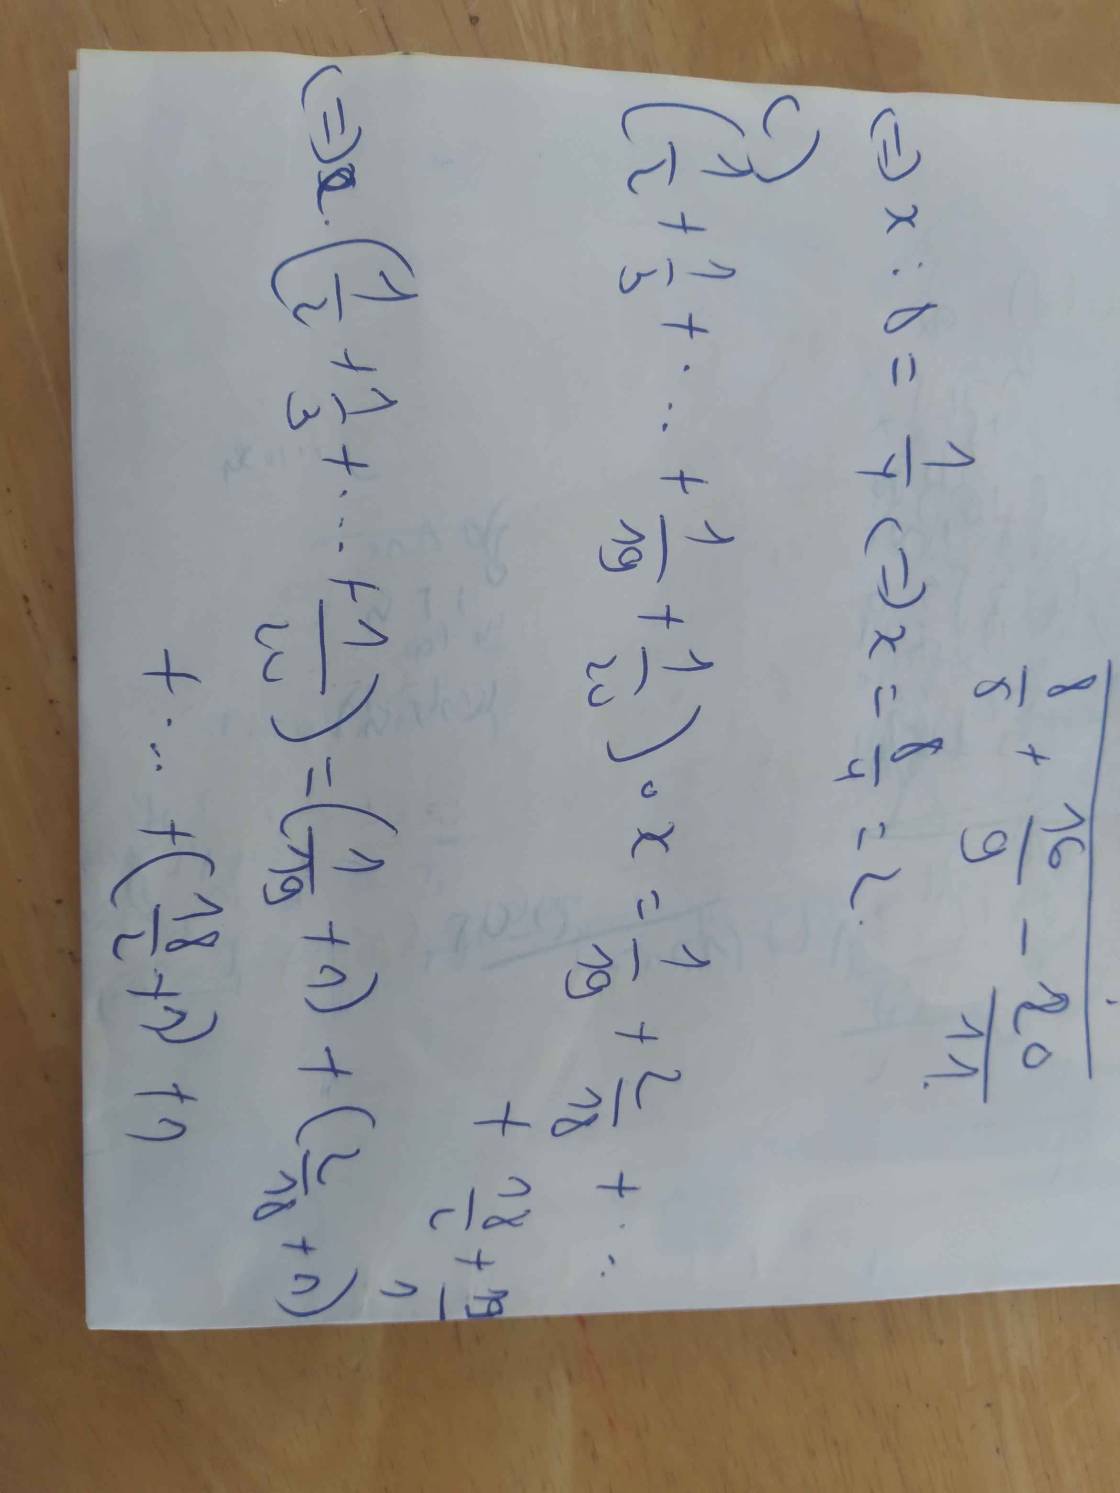 8/5 + 16/9 - 20/11.
(=) x : 8 = 1/4 (=) x = 8/4 = 2.
c)
(1/2 + 1/3 + ... + 1/19 + 1/20) . x = 1/19 + 2/18 + ...
+ 18/2 + 19/1
(=) x . (1/2 + 1/3 + ... + 1/20) = (1/19 + 1) + (2/18 + 1)
+ ... + (18/2 + 1) + 1